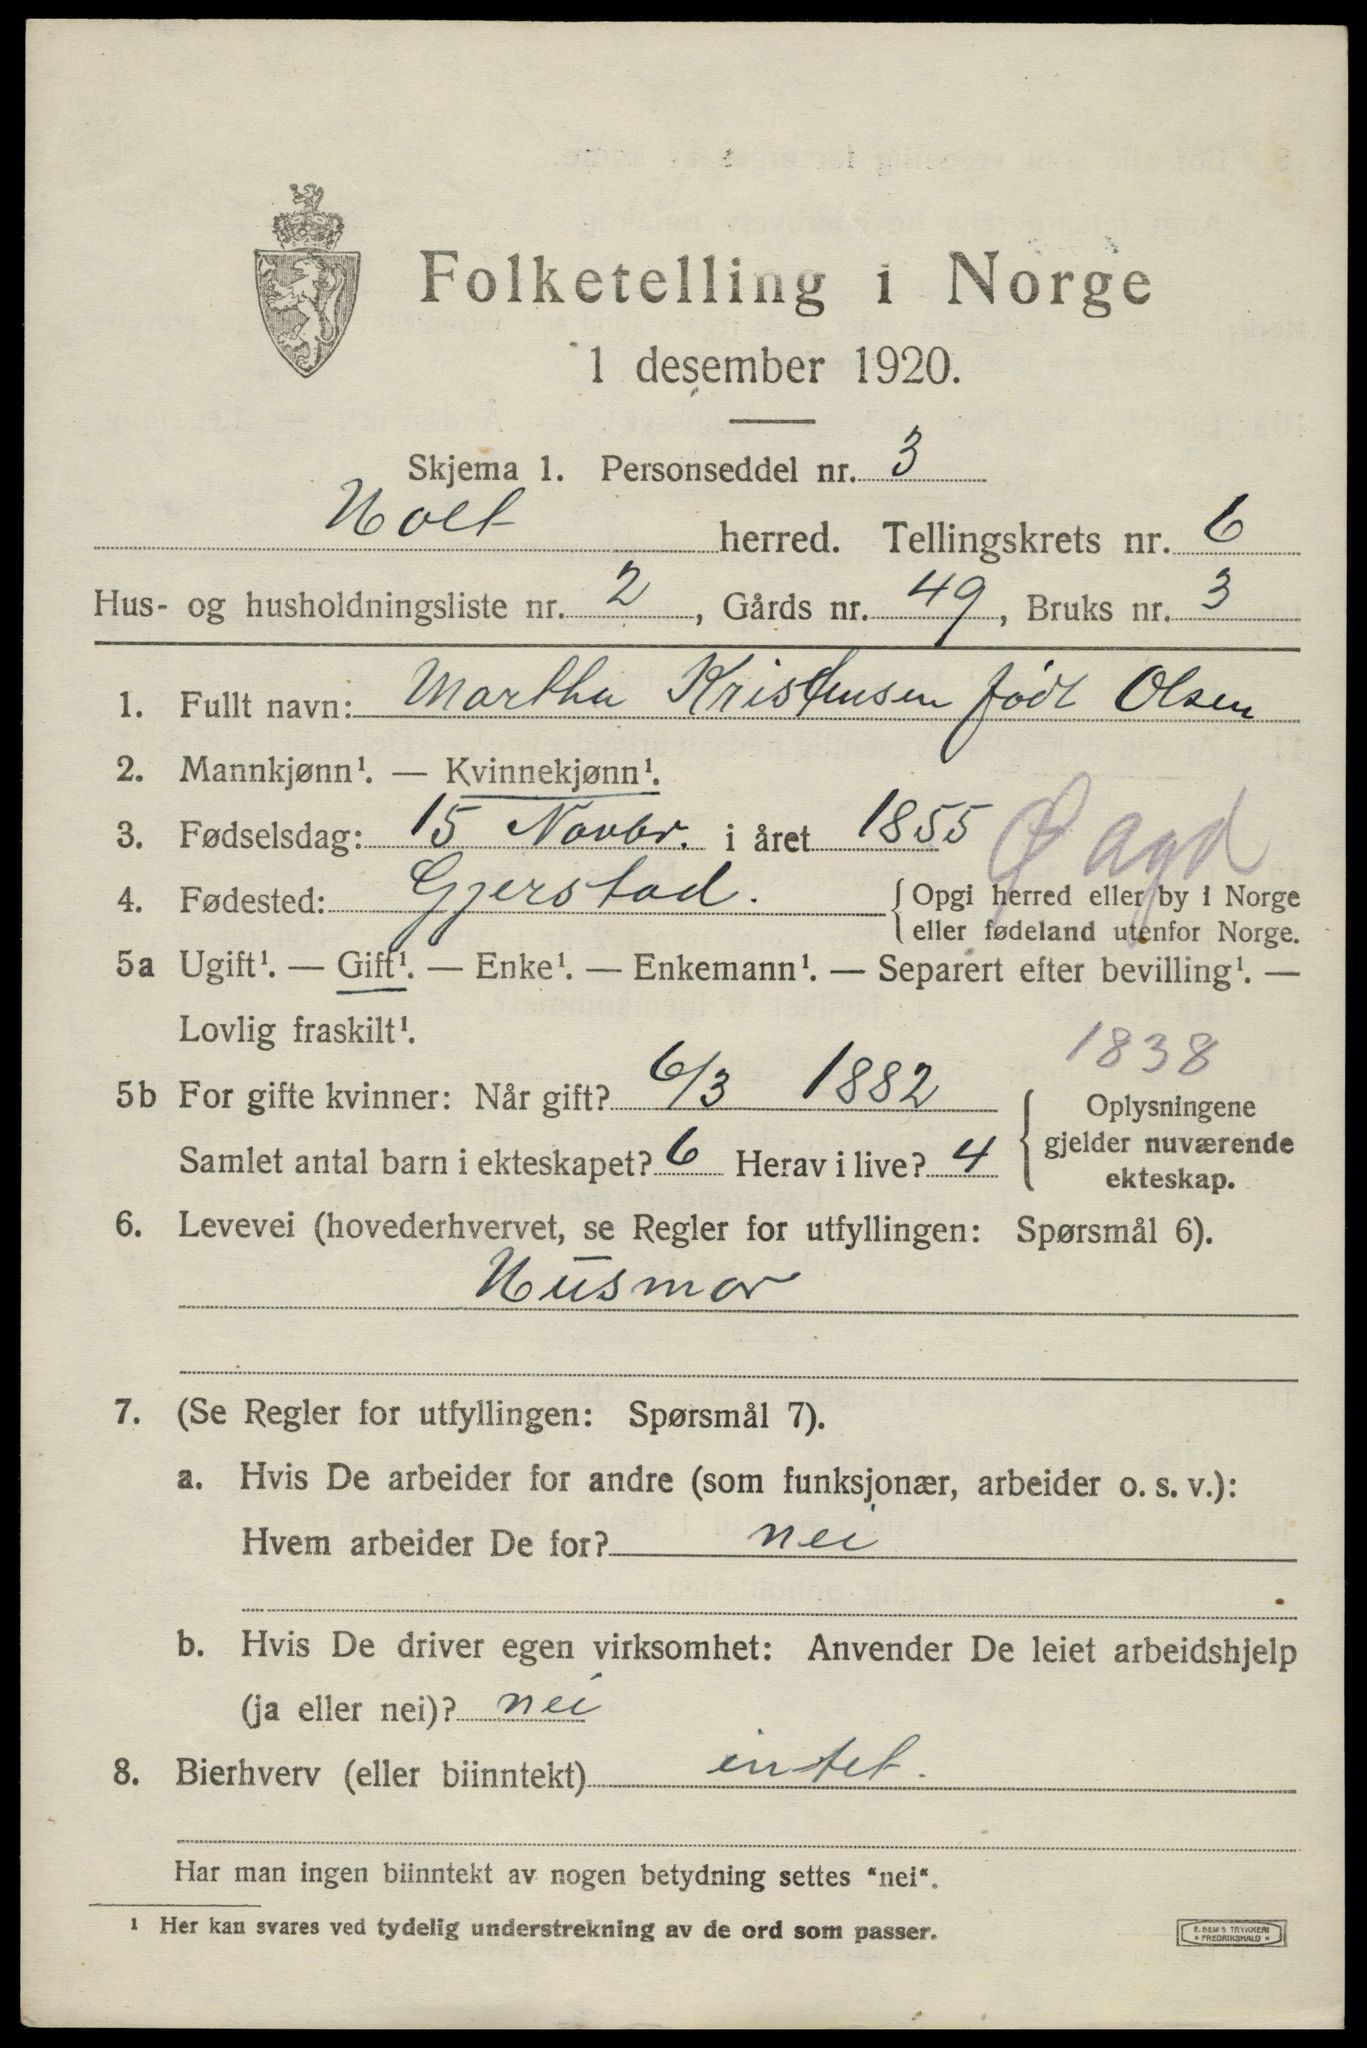 Folketelling i Norge
1 desember 1920.
Skjema 1. Personseddel nr. 3
Holt herred. Tellingskrets nr. 6
Hus- og husholdningsliste nr. 2, Gårds nr. 49, Bruks nr. 3
1. Fullt navn: Martha Kristensen født Olsen
2. Mannkjønn¹. — Kvinnekjønn¹.
3. Fødselsdag: 15 Novbr. i året 1855
Ø agd
4. Fødested: Gjerstad. { Opgi herred eller by i Norge
eller fødeland utenfor Norge.
5a Ugift¹. — Gift¹. — Enke¹. — Enkemann¹. — Separert efter bevilling¹. —
Lovlig fraskilt¹.
1838
5b For gifte kvinner: Når gift? 6/3 1882 { Oplysningene
gjelder nuværende
ekteskap.
Samlet antal barn i ekteskapet? 6 Herav i live? 4
6. Levevei (hovederhvervet, se Regler for utfyllingen: Spørsmål 6).
Husmor
7. (Se Regler for utfyllingen: Spørsmål 7).
a. Hvis De arbeider for andre (som funksjonær, arbeider o. s. v.):
Hvem arbeider De for? nei
b. Hvis De driver egen virksomhet: Anvender De leiet arbeidshjelp
(ja eller nei)? nei
8. Bierhverv (eller biinntekt) intet.
Har man ingen biinntekt av nogen betydning settes "nei".
¹ Her kan svares ved tydelig understrekning av de ord som passer.
E. SEM'S TRYKKERI
FREDRIKSHALD